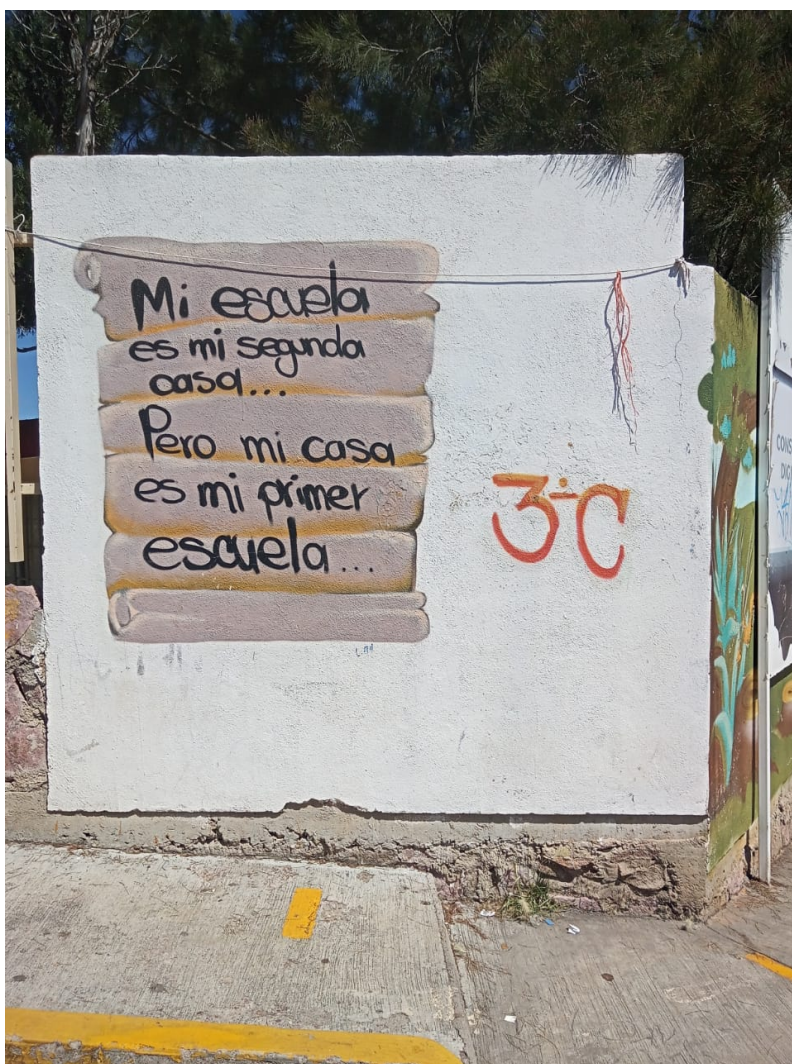 Mi escuela
es mi segunda
casa...
Pero mi casa
es mi primer
escuela...
3° C
CONS